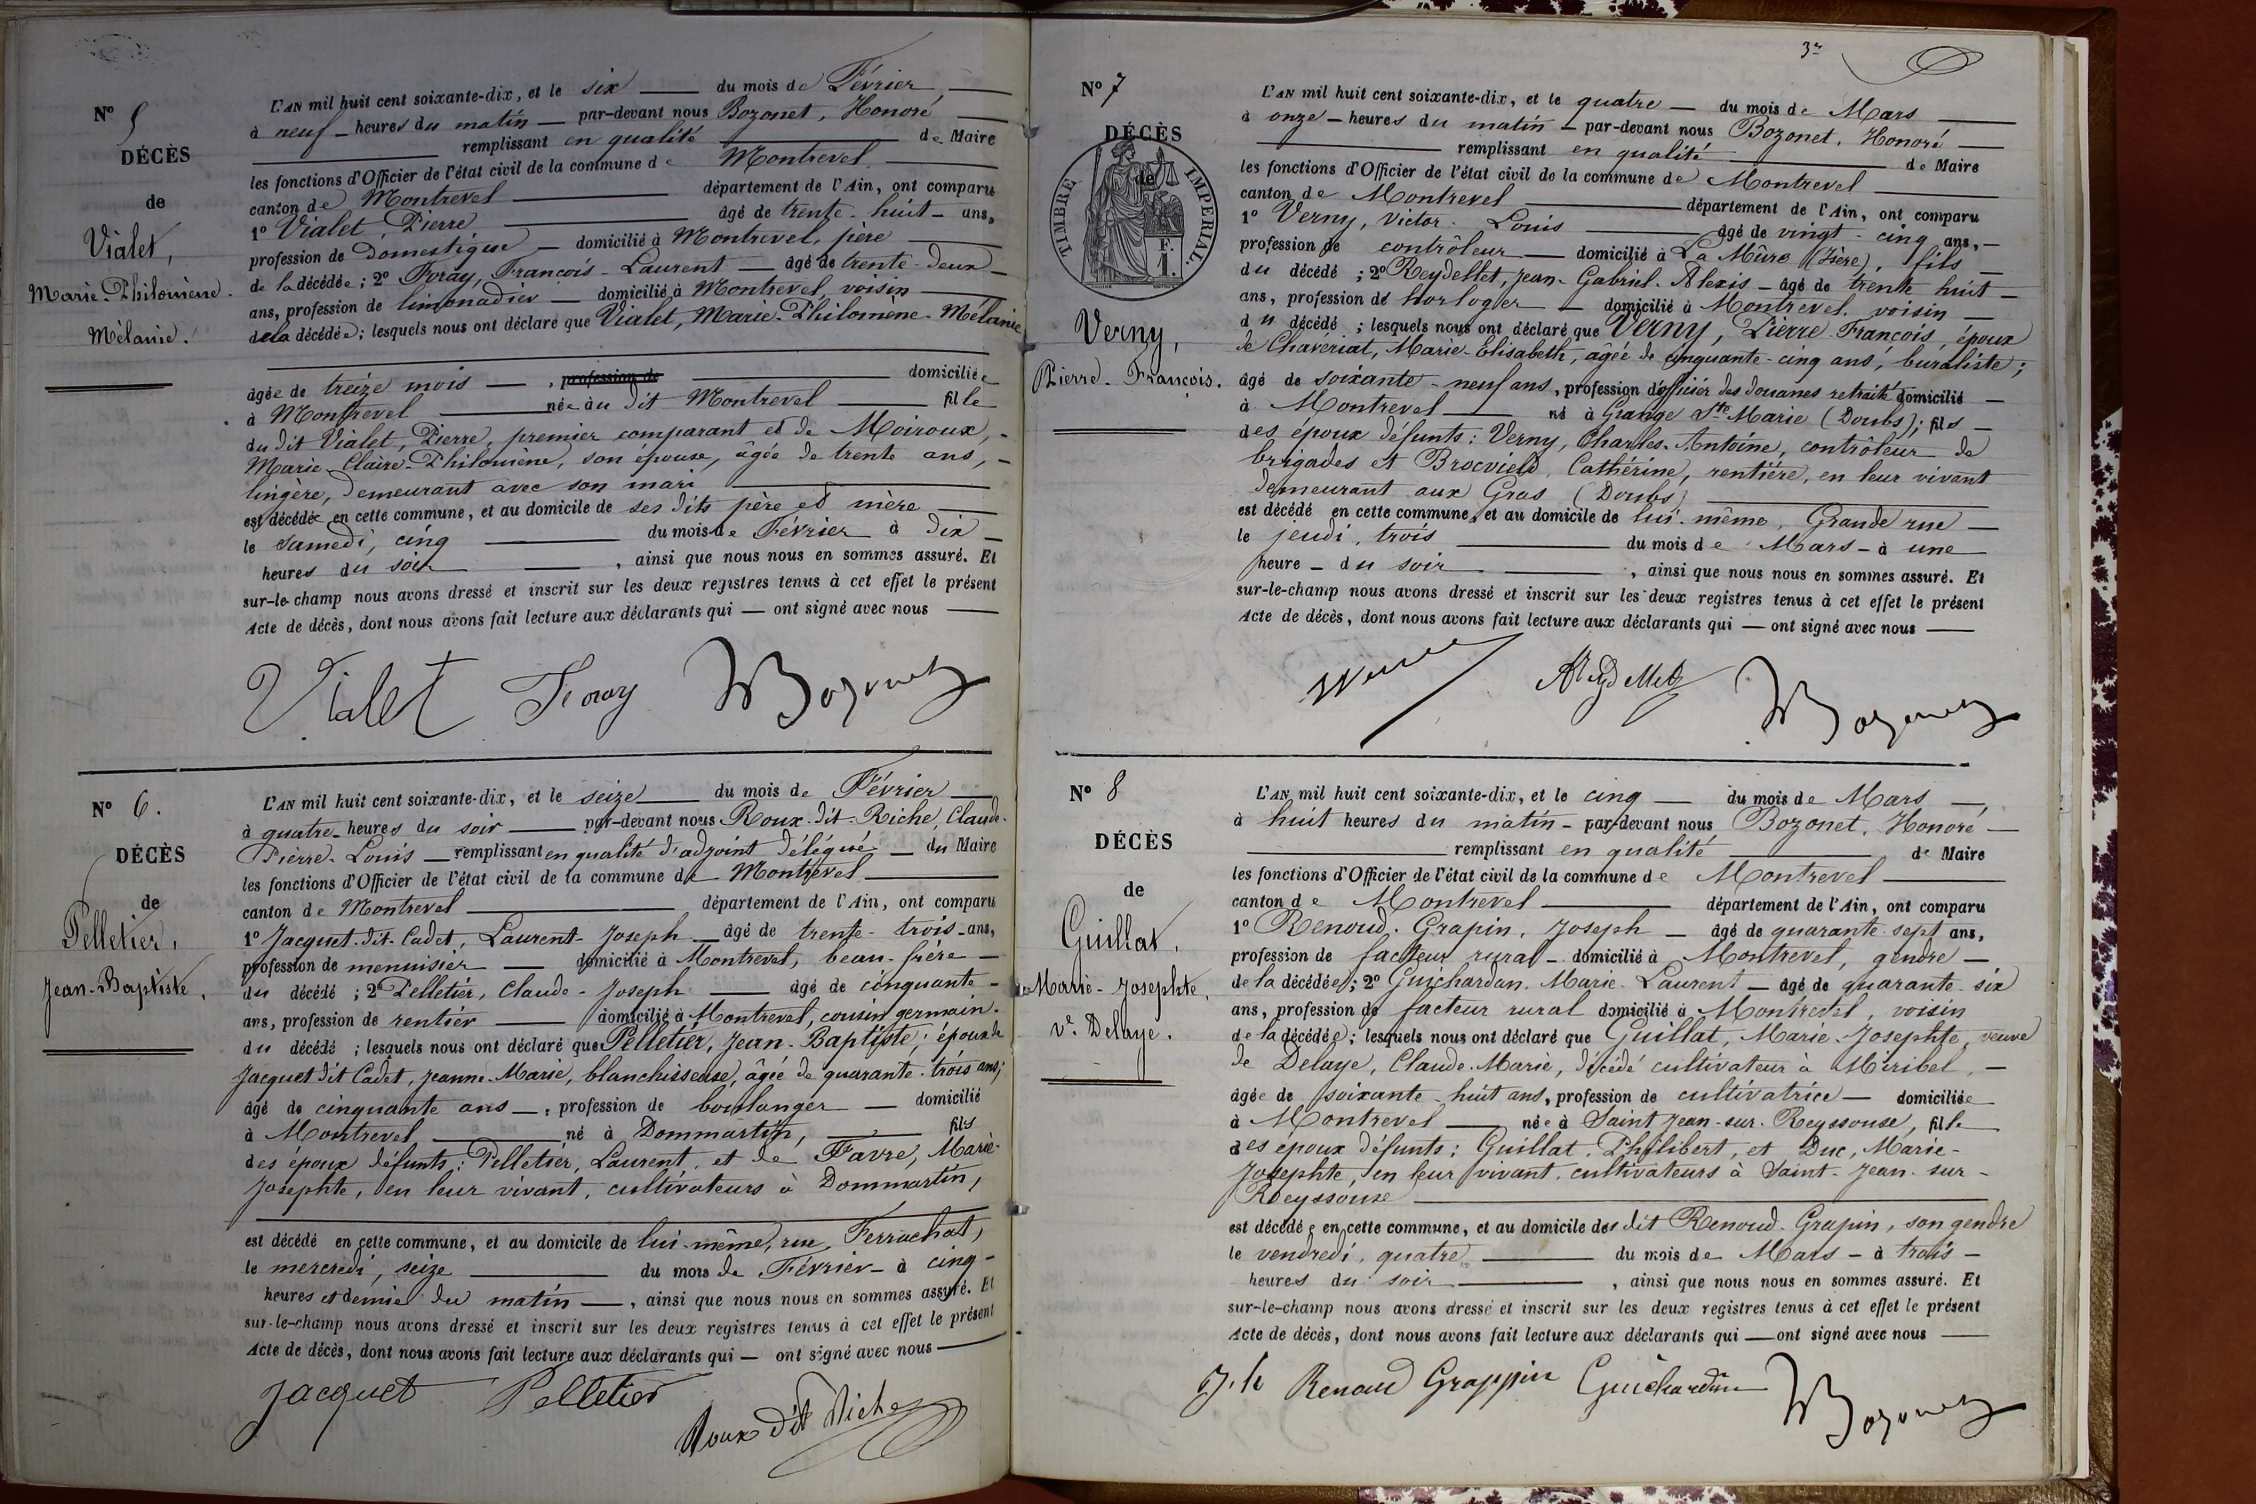 N° 5
DÉCÈS
de
Vialet,
Marie-Philomène-
Mélanie.
L'AN mil huit cent soixante-dix, et le six du mois de Février,
à neuf heures du matin par-devant nous Bozonet, Honoré
remplissant en qualité de Maire
les fonctions d'Officier de l'état civil de la commune de Montrevel
canton de Montrevel département de l'Ain, ont comparu
1° Vialet, Pierre âgé de trente-huit ans,
profession de Domestique domicilié à Montrevel, père
de la décédée; 2° Foray, François-Laurent âgé de trente-deux
ans, profession de limonadier domicilié à Montrevel, voisin
de la décédée; lesquels nous ont déclaré que Vialet, Marie-Philomène-Mélanie
âgée de treize mois, profession de domiciliée
à Montrevel née àu dit Montrevel fille
du dit Vialet, Pierre, premier comparant et de Moiroux,
Marie-Claire-Philomène, son épouse, âgée de trente ans,
lingère, demeurant avec son mari
est décédée en cette commune, et au domicile de ses dits père et mère
le samedi, cinq du mois de Février à dix
heures du soir, ainsi que nous nous en sommes assuré. Et
sur-le-champ nous avons dressé et inscrit sur les deux registres tenus à cet effet le présent
Acte de décès, dont nous avons fait lecture aux déclarants qui — ont signé avec nous
Vialet Foray HBozonet
N° 6.
DÉCÈS
de
Pelletier,
Jean-Baptiste,
L'AN mil huit cent soixante-dix, et le seize du mois de Février
à quatre heures du soir par-devant nous Roux-dit-Riche, Claude-
Pierre-Louis remplissant en qualité d'adjoint délégué du Maire
les fonctions d'Officier de l'état civil de la commune de Montrevel
canton de Montrevel département de l'Ain, ont comparu
1° Jacquet-dit-Cadet, Laurent-Joseph âgé de trente-trois ans,
profession de menuisier domicilié à Montrevel, beau-frère
du décédé; 2° Pelletier, Claude-Joseph âgé de cinquante
ans, profession de rentier domicilié à Montrevel, cousin germain
du décédé; lesquels nous ont déclaré que Pelletier, Jean-Baptiste, époux de
Jacquet dit Cadet, Jeanne-Marie, blanchisseuse, âgée de quarante-trois ans;
âgé de cinquante ans, profession de boulanger domicilié
à Montrevel né à Dommartin, fils
des époux défunts: Pelletier, Laurent, et de Favre, Marie-
Josephte, en leur vivant, cultivateurs à Dommartin,
est décédé en cette commune, et au domicile de lui-même, rue Ferrachat,
le mercredi, seize du mois de Février à cinq
heures et demie du matin, ainsi que nous nous en sommes assuré. Et
sur-le-champ nous avons dressé et inscrit sur les deux registres tenus à cet effet le présent
Acte de décès, dont nous avons fait lecture aux déclarants qui — ont signé avec nous
Jacquet Pelletier
Roux Dit Riche
3e
N° 7
DÉCÈS
de
TIMBRE IMPÉRIAL.
F.
1.
Verny,
Pierre-François.
L'AN mil huit cent soixante-dix, et le quatre du mois de Mars
à onze heures du matin par-devant nous Bozonet, Honoré
remplissant en qualité de Maire
les fonctions d'Officier de l'état civil de la commune de Montrevel
canton de Montrevel département de l'Ain, ont comparu
1° Verny, Victor-Louis âgé de vingt-cinq ans,
profession de contrôleur domicilié à La Mûre (Isère), fils
du décédé; 2° Reydellet, Jean-Gabriel-Alexis âgé de trente huit
ans, profession de horloger domicilié à Montrevel, voisin
du décédé; lesquels nous ont déclaré que Verny, Pierre-François, époux
de Chaveriat, Marie-Elisabeth, âgée de cinquante-cinq ans, buraliste;
âgé de soixante-neuf ans, profession d'officier des douanes retraité domicilié
à Montrevel né à Grange Ste Marie (Doubs); fils
des époux défunts: Verny, Charles-Antoine, contrôleur de
brigades et Brocvield, Cathérine, rentière, en leur vivant
demeurant aux Gras (Doubs)
est décédé en cette commune, et au domicile de lui-même, Grande rue
le jeudi, trois du mois de Mars à une
heure du soir, ainsi que nous nous en sommes assuré. Et
sur-le-champ nous avons dressé et inscrit sur les deux registres tenus à cet effet le présent
Acte de décès, dont nous avons fait lecture aux déclarants qui — ont signé avec nous
Reydellet HBozonet
N° 8
DÉCÈS
de
Guillat,
Marie-Josephte,
ve Delaye.
L'AN mil huit cent soixante-dix, et le cinq du mois de Mars,
à huit heures du matin par-devant nous Bozonet, Honoré
remplissant en qualité de Maire
les fonctions d'Officier de l'état civil de la commune de Montrevel
canton de Montrevel département de l'Ain, ont comparu
1° Renoud-Grapin, Joseph âgé de quarante-sept ans,
profession de facteur rural domicilié à Montrevel, gendre
de la décédée; 2° Guichardan, Marie-Laurent âgé de quarante-six
ans, profession de facteur rural domicilié à Montrevel, voisin
de la décédée; lesquels nous ont déclaré que Guillat, Marie-Josephte, veuve
de Delaye, Claude-Marie, décédé cultivateur à Miribel,
âgée de soixante-huit ans, profession de cultivatrice domiciliée
à Montrevel née à Saint Jean-sur-Reyssouse, fille
des époux défunts: Guillat, Philibert, et Duc, Marie-
Josephte, en leur vivant cultivateurs à Saint-Jean-sur-
Reyssouse
est décédée en cette commune, et au domicile des dit Renoud-Grapin, son gendre
le vendredi, quatre du mois de Mars à trois
heures du soir, ainsi que nous nous en sommes assuré. Et
sur-le-champ nous avons dressé et inscrit sur les deux registres tenus à cet effet le présent
Acte de décès, dont nous avons fait lecture aux déclarants qui — ont signé avec nous
J.h Renaud Grappin Guichardan HBozonet